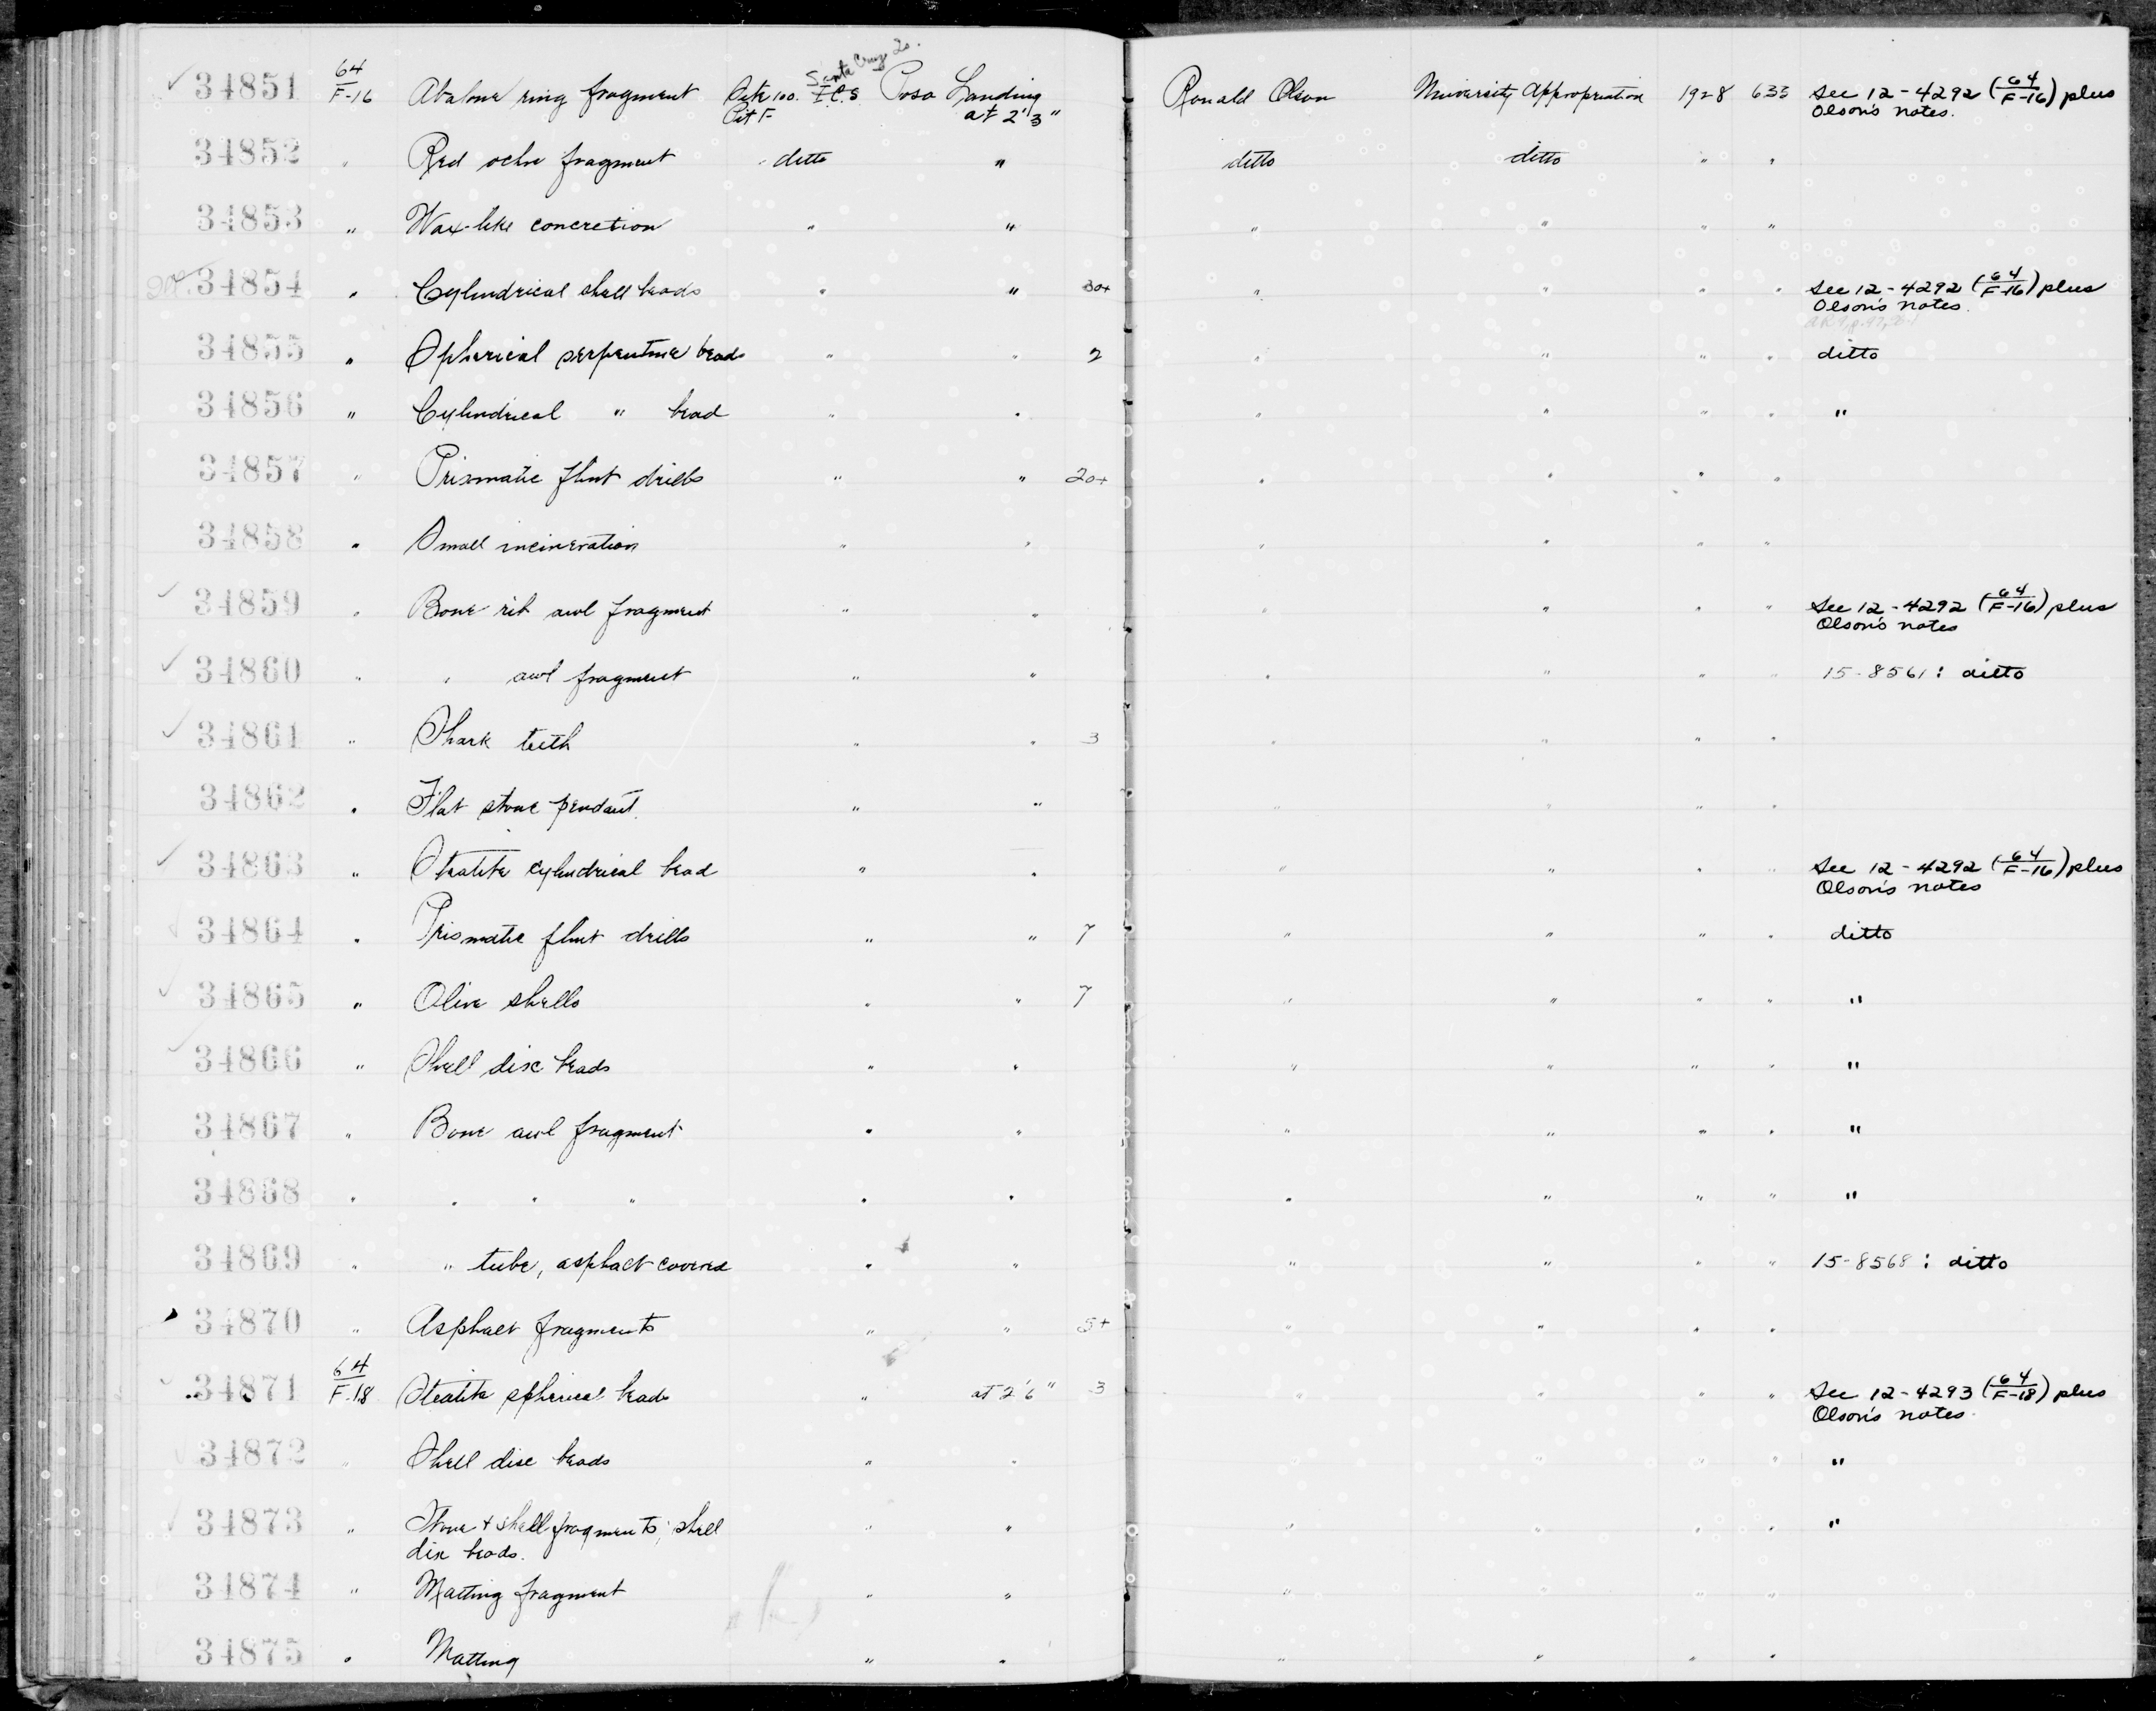 34851 64/F-16 Abalone ring fragment Site 100. Santa Cruz Is. I.C.S. Poso Landing Ronald Olson University Appropriation 1928 633 See 12-4292 (64/F-16) plus
Pit F at 2'3" Olson's notes.
34852 " Red ochre fragment ditto " ditto ditto " "
34853 " Wax-like concretion " " " " " "
34854 " Cylindrical shell beads " " 30+ " " " " See 12-4292 (64/F-16) plus
Olson's notes.
34855 " Spherical serpentine beads " " 2 " " " " ditto
34856 " Cylindrical " bead " " " " " " "
34857 " Prismatic flint drills " " 20+ " " " "
34858 " Small incineration " " " " " "
34859 " Bone rib awl fragment " " " " " " See 12-4292 (64/F-16) plus
Olson's notes
34860 " " awl fragment " " " " " " 15-8561: ditto
34861 " Shark teeth " " 3 " " " "
34862 " Flat stone pendant. " " " " " "
34863 " Steatite cylindrical bead " " " " " " See 12-4292 (64/F-16) plus
Olson's notes
34864 " Prismatic flint drills " " 7 " " " " ditto
34865 " Olive shells " " 7 " " " " "
34866 " Shell disc beads " " " " " " "
34867 " Bone awl fragment " " " " " " "
34868 " " " " " " " " " " "
34869 " " tube, asphalt covered " " " " " " 15-8568: ditto
34870 " Asphalt fragments " " 5+ " " " "
34871 64/F-18 Steatite spherical beads " at 2'6" 3 " " " " See 12-4293 (64/F-18) plus
Olson's notes.
34872 " Shell disc beads " " " " " " "
34873 " Stone + shell fragments; shell " " " " " " "
disc beads.
34874 " Matting fragment " " " " " "
34875 " Matting " " " " " "